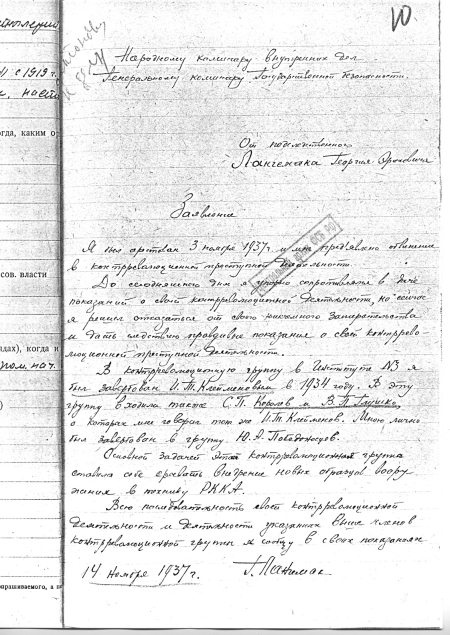 10
Народному комиссару внутренних дел
Генеральному комиссару Государственной безопасности
От подследственного
Лангемака Георгия Эриховича
Заявление
Я был арестован 3 ноября 1937 г. и мне предъявлено обвинение
в контрреволюционной преступной деятельности.
До сегодняшнего дня я упорно сопротивлялся в даче
показаний о своей контрреволюционной деятельности, но сейчас
я решил отказаться от своего никчемного запирательства
и дать следствию правдивые показания о своей контррево-
люционной преступной деятельности.
В контрреволюционную группу в Институте №3 я
был завербован И.Т. Клейменовым в 1934 году. В эту
группу входили также С.П. Королев и В.П. Глушко,
о которых мне говорил тот же И.Т. Клейменов. Мною лично
был завербован в группу Ю.А. Победоносцев.
Основной задачей этой контрреволюционная группа
ставила себе срывать внедрение новых образцов воору
жения в технику РККА.
Всю последовательность своей контрреволюционной
деятельности и деятельности указанных выше членов
контрреволюционной группы я сообщу в своих показаниях
14 ноября 1937 г. Г. Лангемак
с 1919 г.
огда, каким о
сов. власти
адах), когда и
прашиваемого, а п